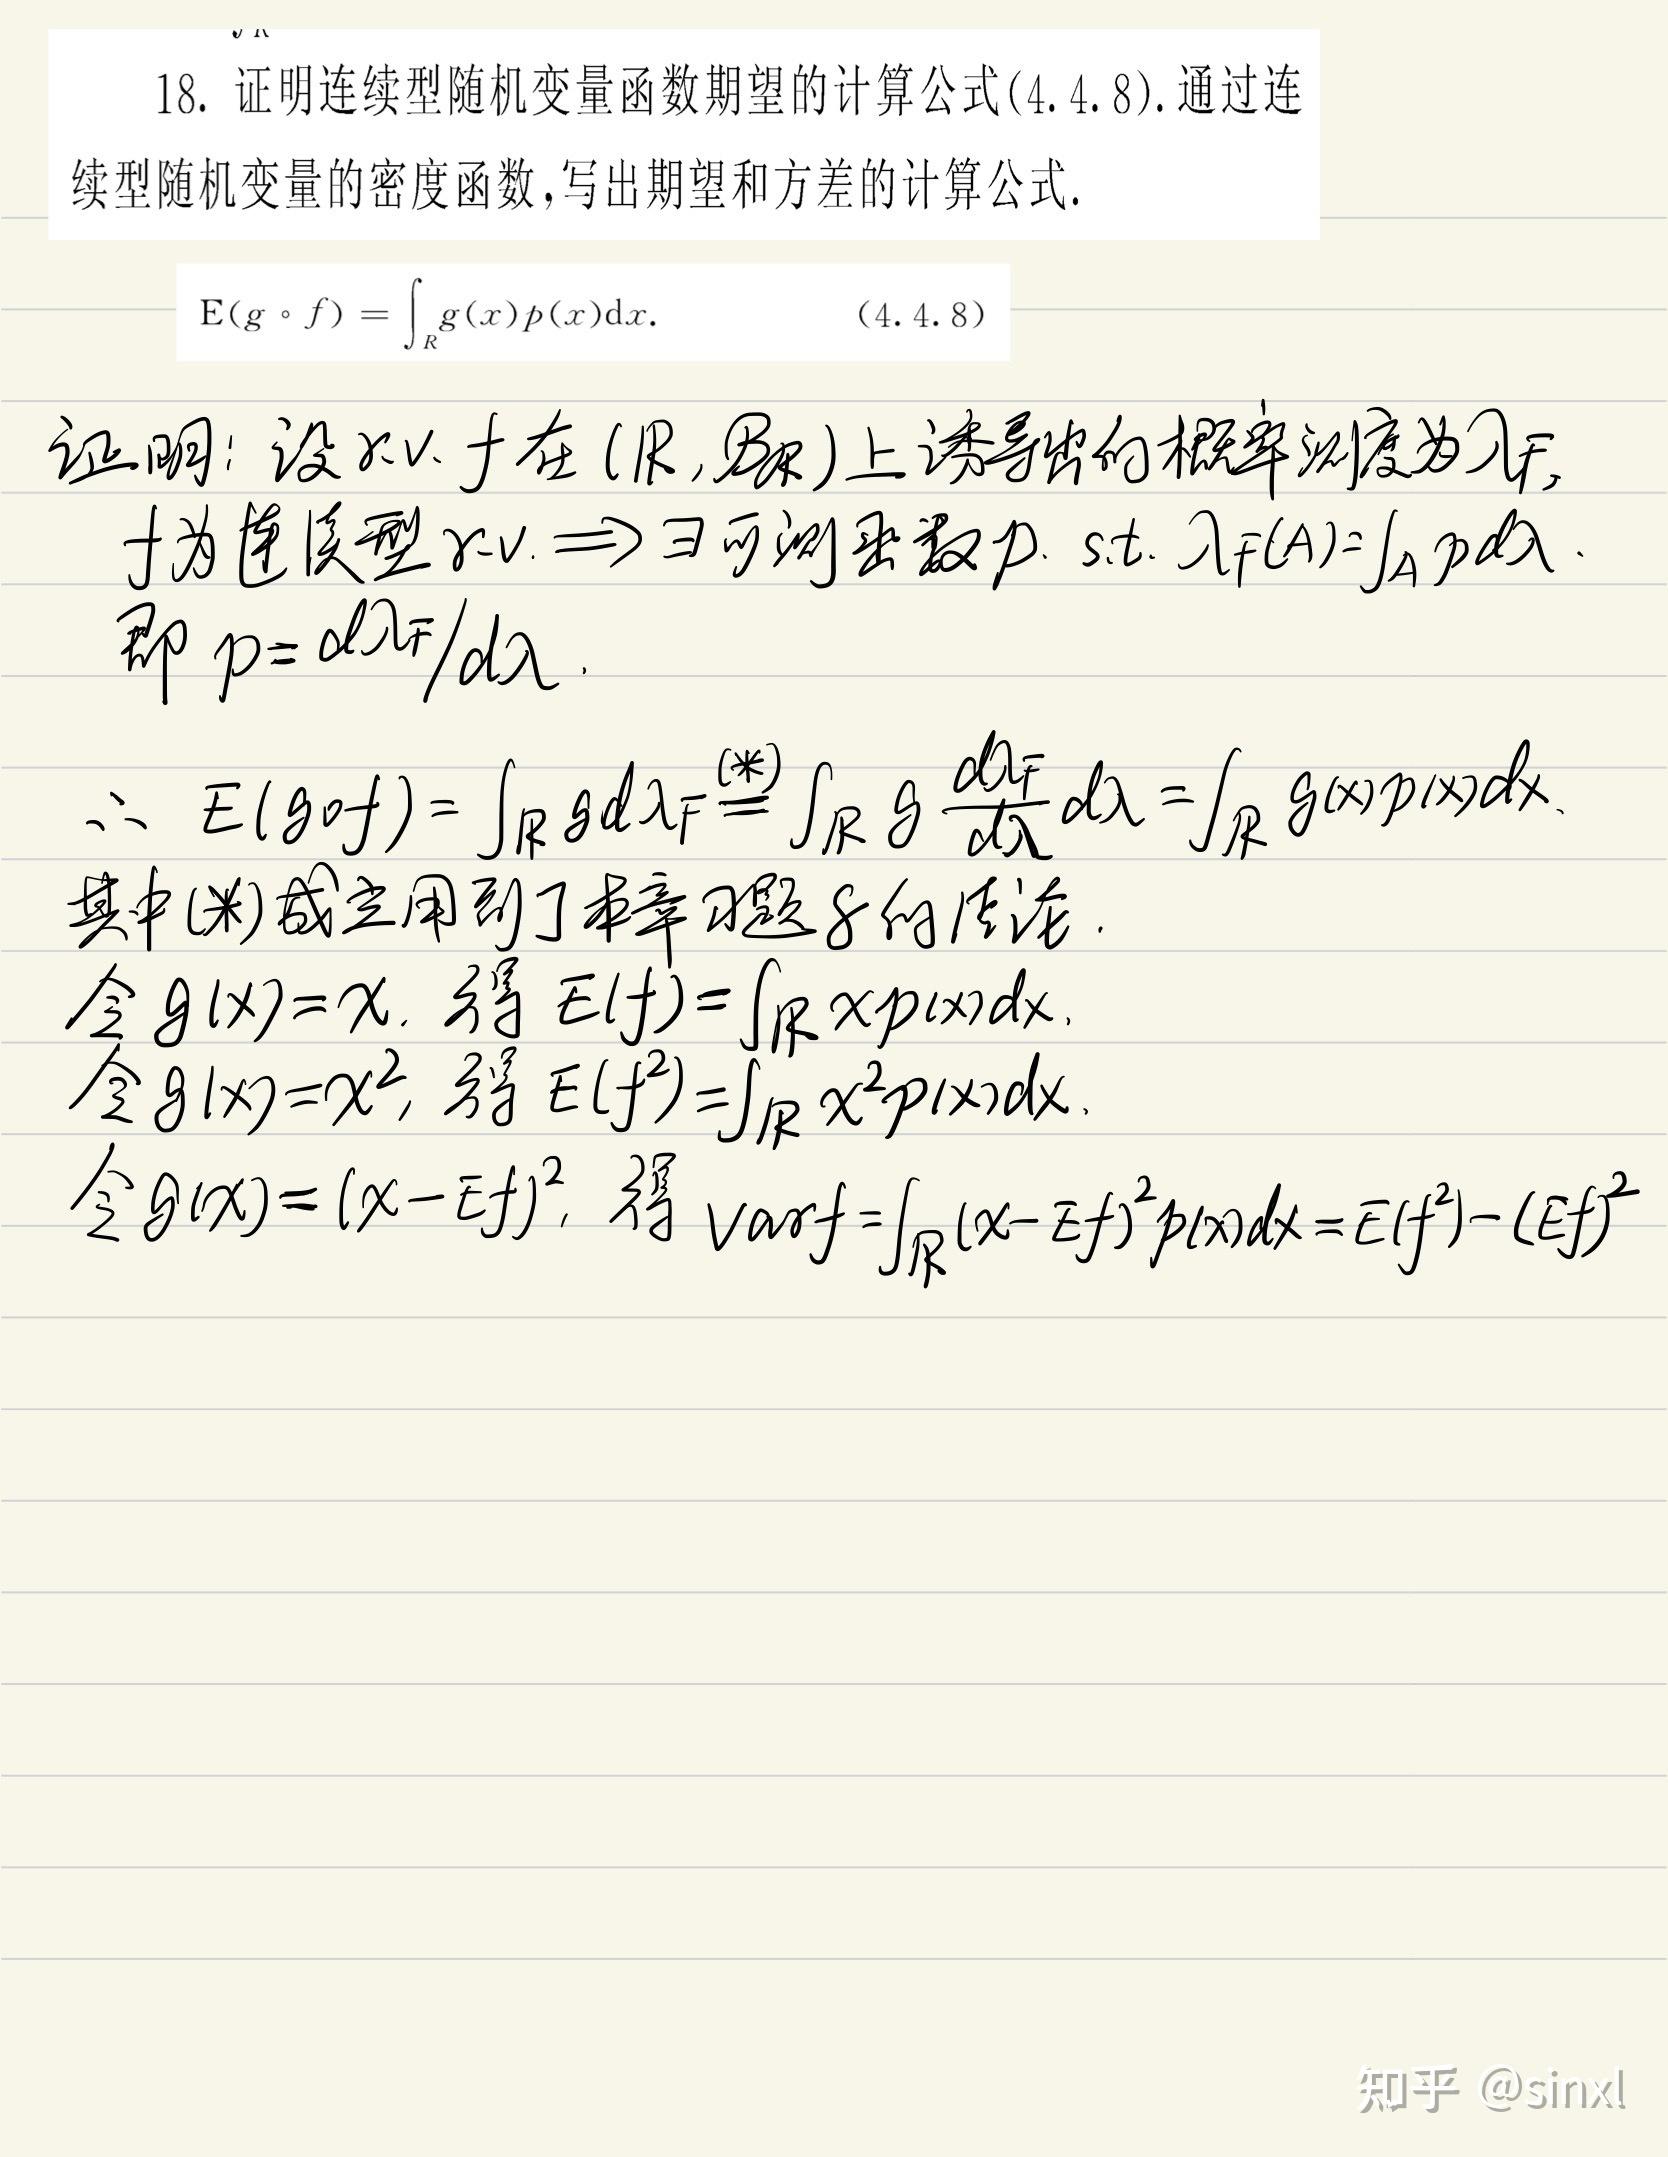 18. 证明连续型随机变量函数期望的计算公式(4.4.8).通过连
续型随机变量的密度函数,写出期望和方差的计算公式.
E(g∘f) = ∫_R g(x)p(x)dx. (4.4.8)
证明: 设 r.v. f 在 (ℝ, ℬ_ℝ) 上诱导出的概率测度为 λ_F,
f为连续型 r.v. ⟹ ∃ 可测函数 p. s.t. λ_F(A)=∫_A p dλ.
即 p = dλ_F/dλ.
∴ E(g∘f) = ∫_ℝ g dλ_F (*)= ∫_ℝ g dλ_F/dλ dλ = ∫_ℝ g(x)p(x)dx.
其中(*)成立用到了本章习题8的结论.
令 g(x)=x. 得 E(f)=∫_ℝ xp(x)dx.
令 g(x)=x², 得 E(f²)=∫_ℝ x²p(x)dx.
令 g(x)=(x-Ef)², 得 var f=∫_ℝ(x-Ef)²p(x)dx=E(f²)-(Ef)²
知乎 @sinxl